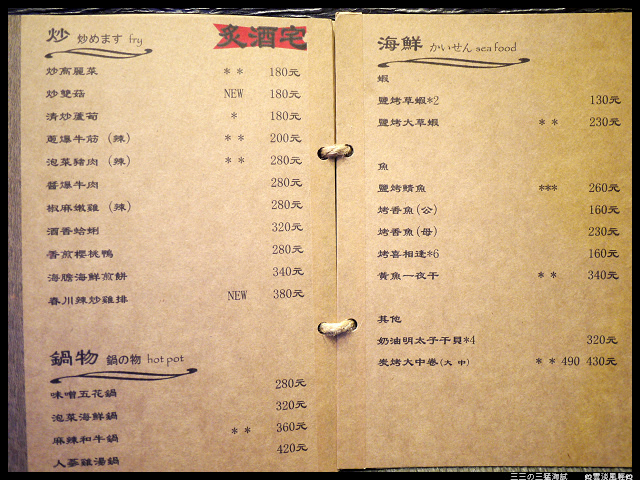 炒 炒めます fry
炙酒宅
炒高麗菜 ** 180元
炒雙菇 NEW 180元
清炒蘆筍 * 180元
蔥爆牛筋（辣） ** 200元
泡菜豬肉（辣） ** 280元
醬爆牛肉 280元
椒麻嫩雞（辣） 280元
酒香蛤蜊 320元
香煎櫻桃鴨 280元
海膽海鮮煎餅 340元
春川辣炒雞排 NEW 380元
鍋物 鍋の物 hot pot
味噌五花鍋 280元
泡菜海鮮鍋 320元
麻辣和牛鍋 ** 360元
人蔘雞湯鍋 420元
海鮮 かいせん sea food
蝦
鹽烤草蝦*2 130元
鹽烤大草蝦 ** 230元
魚
鹽烤鯖魚 *** 260元
烤香魚(公) 160元
烤香魚(母) 230元
烤喜相逢*6 160元
黃魚一夜干 ** 340元
其他
奶油明太子干貝*4 320元
炭烤大中卷(大 中) ** 490 430元
三三の三猛海賦